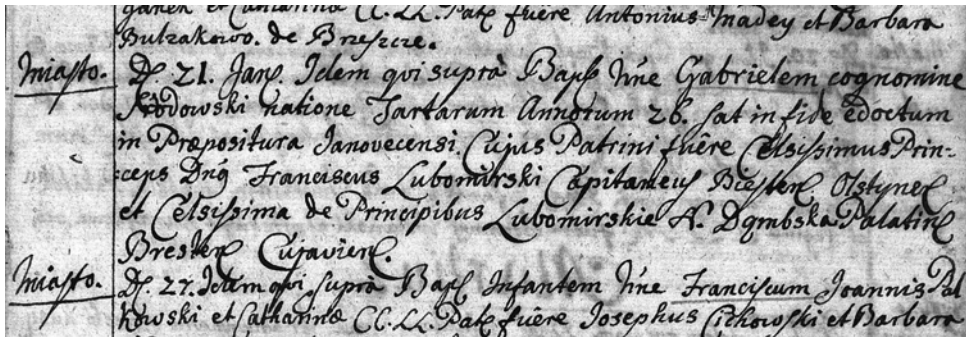 ganek et Catharina CC. LL. Patr fuêre Antonius Madey et Barbara
Bulzakowo. de Brzeszcze.
Miasto. D. 21. Jan. Idem qui suprà Bap. Nñe Gabrielem cognomine
natione Tartarum Annorum 26. sat in fide edoctum
in Præpositura Janovecensi. Cujus Patrini fuêre Celsissimus Prin-
ceps Dnꝰ Franciscus Lubomirski Capitaneus Biecen. Olstynen.
et Celsissima de Principibus Lubomirskie N. Dąmbska Palatin.
Bresten. Cujavien.
Miasto. D. 27. Idem qui suprà Bap. Infantem Nñe Franciscum Joannis Pal
kowski et Catharinæ CC. LL. Patr. fuêre Josephus Cichowski et Barbara